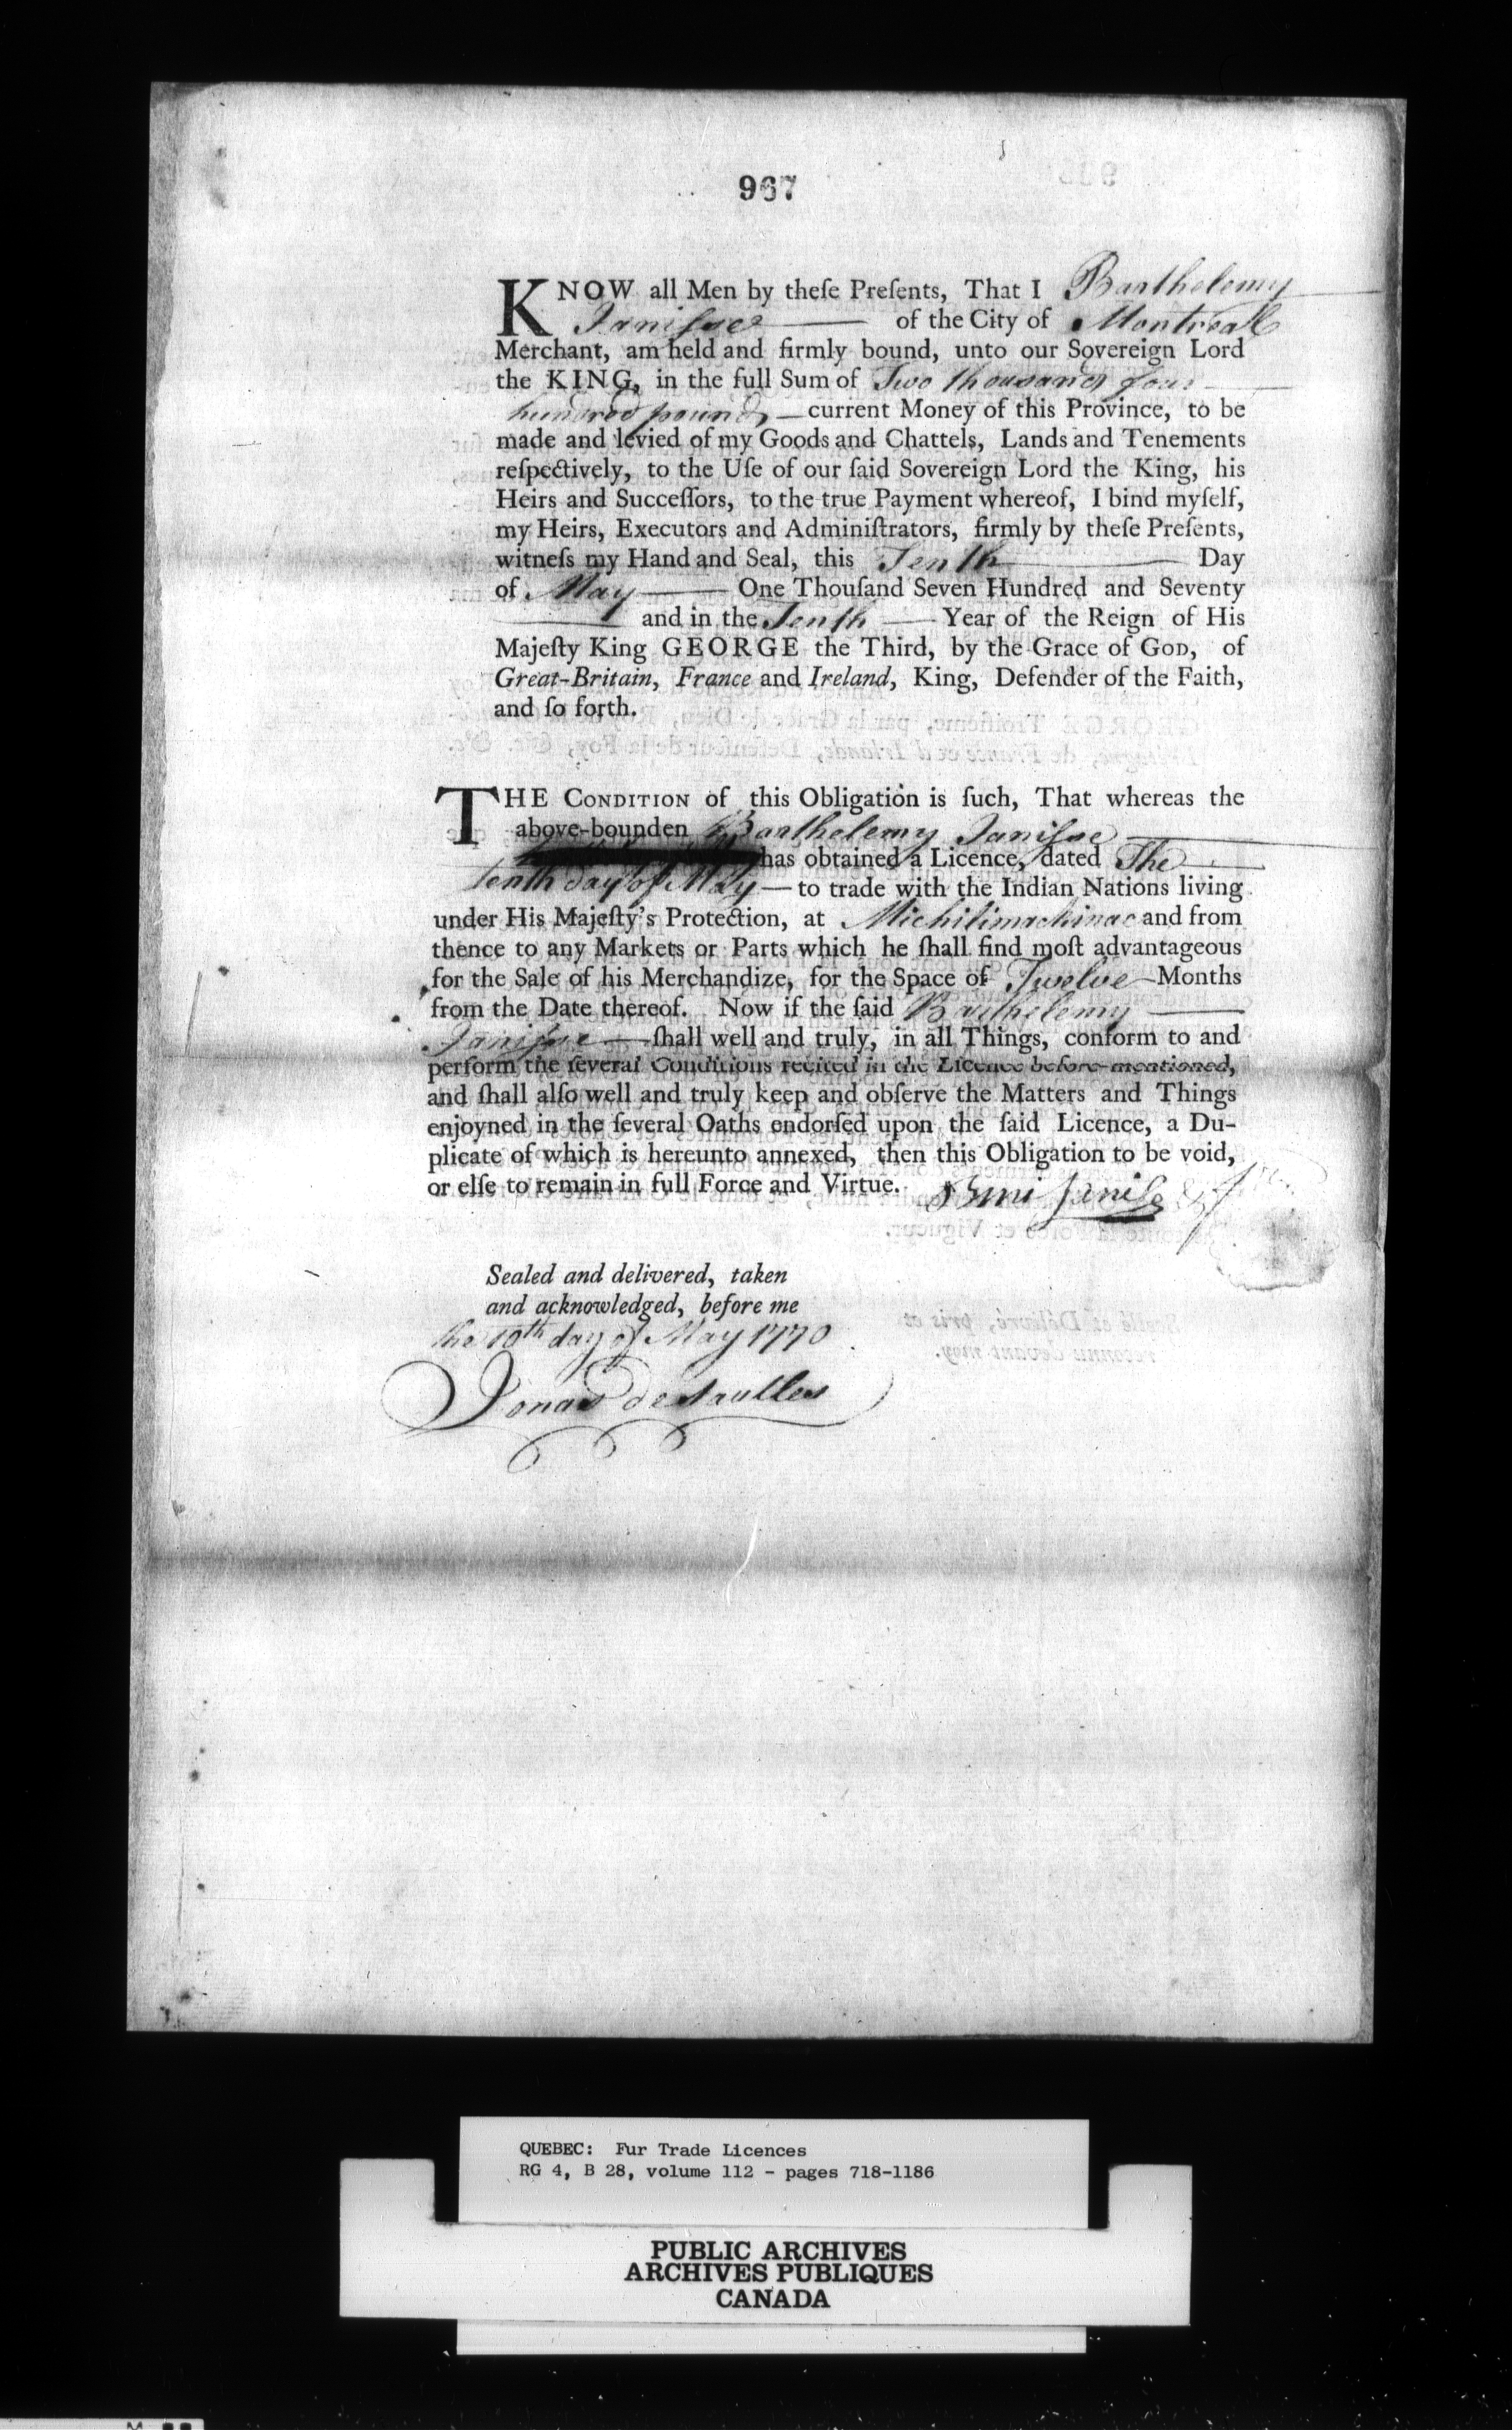 967
KNOW all Men by theſe Preſents, That I Barthelemy
Janiſse of the City of Montreall
Merchant, am held and firmly bound, unto our Sovereign Lord
the KING, in the full Sum of Two thousand four
hundred pounds — current Money of this Province, to be
made and levied of my Goods and Chattels, Lands and Tenements
reſpectively, to the Uſe of our ſaid Sovereign Lord the King, his
Heirs and Succeſſors, to the true Payment whereof, I bind myſelf,
my Heirs, Executors and Adminiſtrators, firmly by theſe Preſents,
witneſs my Hand and Seal, this Tenth Day
of May — One Thouſand Seven Hundred and Seventy
— and in the Tenth — Year of the Reign of His
Majeſty King GEORGE the Third, by the Grace of GOD, of
Great-Britain, France and Ireland, King, Defender of the Faith,
and ſo forth.
THE CONDITION of this Obligation is ſuch, That whereas the
above-bounden Barthelemy Janiſse
has obtained a Licence, dated The
tenth day of May — to trade with the Indian Nations living
under His Majeſty's Protection, at Michilimackinac and from
thence to any Markets or Parts which he ſhall find moſt advantageous
for the Sale of his Merchandize, for the Space of Twelve Months
from the Date thereof. Now if the ſaid Barthelemy
Janiſse — ſhall well and truly, in all Things, conform to and
perform the ſeveral Conditions recited in the Licence before-mentioned,
and ſhall alſo well and truly keep and obſerve the Matters and Things
enjoyned in the ſeveral Oaths endorſed upon the ſaid Licence, a Du-
plicate of which is hereunto annexed, then this Obligation to be void,
or elſe to remain in full Force and Virtue.
Sealed and delivered, taken
and acknowledged, before me
the 10th day of May 1770
Jonas desaulles
QUEBEC: Fur Trade Licences
RG 4, B 28, volume 112 - pages 718-1186
PUBLIC ARCHIVES
ARCHIVES PUBLIQUES
CANADA